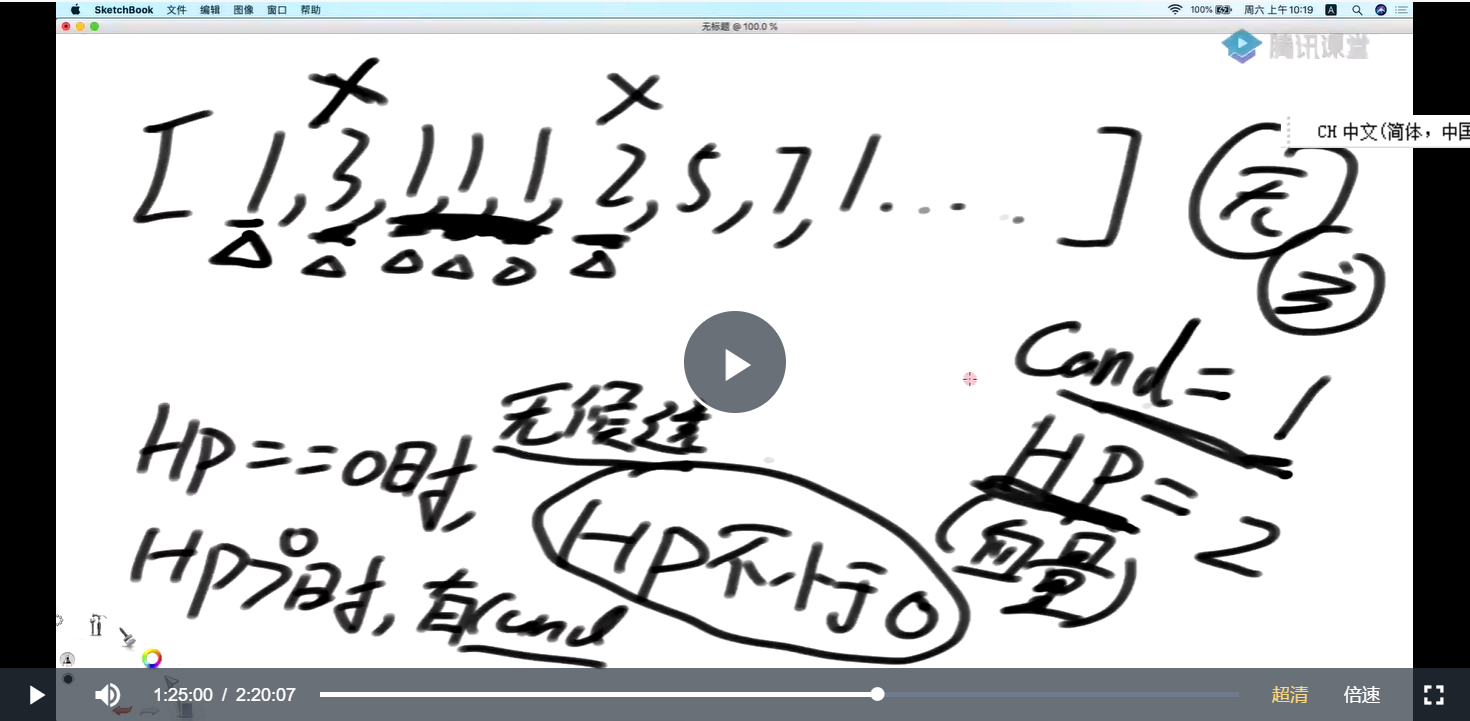 SketchBook 文件 编辑 图像 窗口 帮助 100% 周六 上午10:19 A
无标题 @ 100.0 %
腾讯课堂
CH 中文(简体，中国
[ 1, 3, 1, 1, 1, 2, 5, 7, 1 . . . . . ]
无
Cand = 1
HP = 2
(血量)
HP == 0时, 无侯选
HP不小于0
HP>0时, 有cand
1:25:00 / 2:20:07 超清 倍速